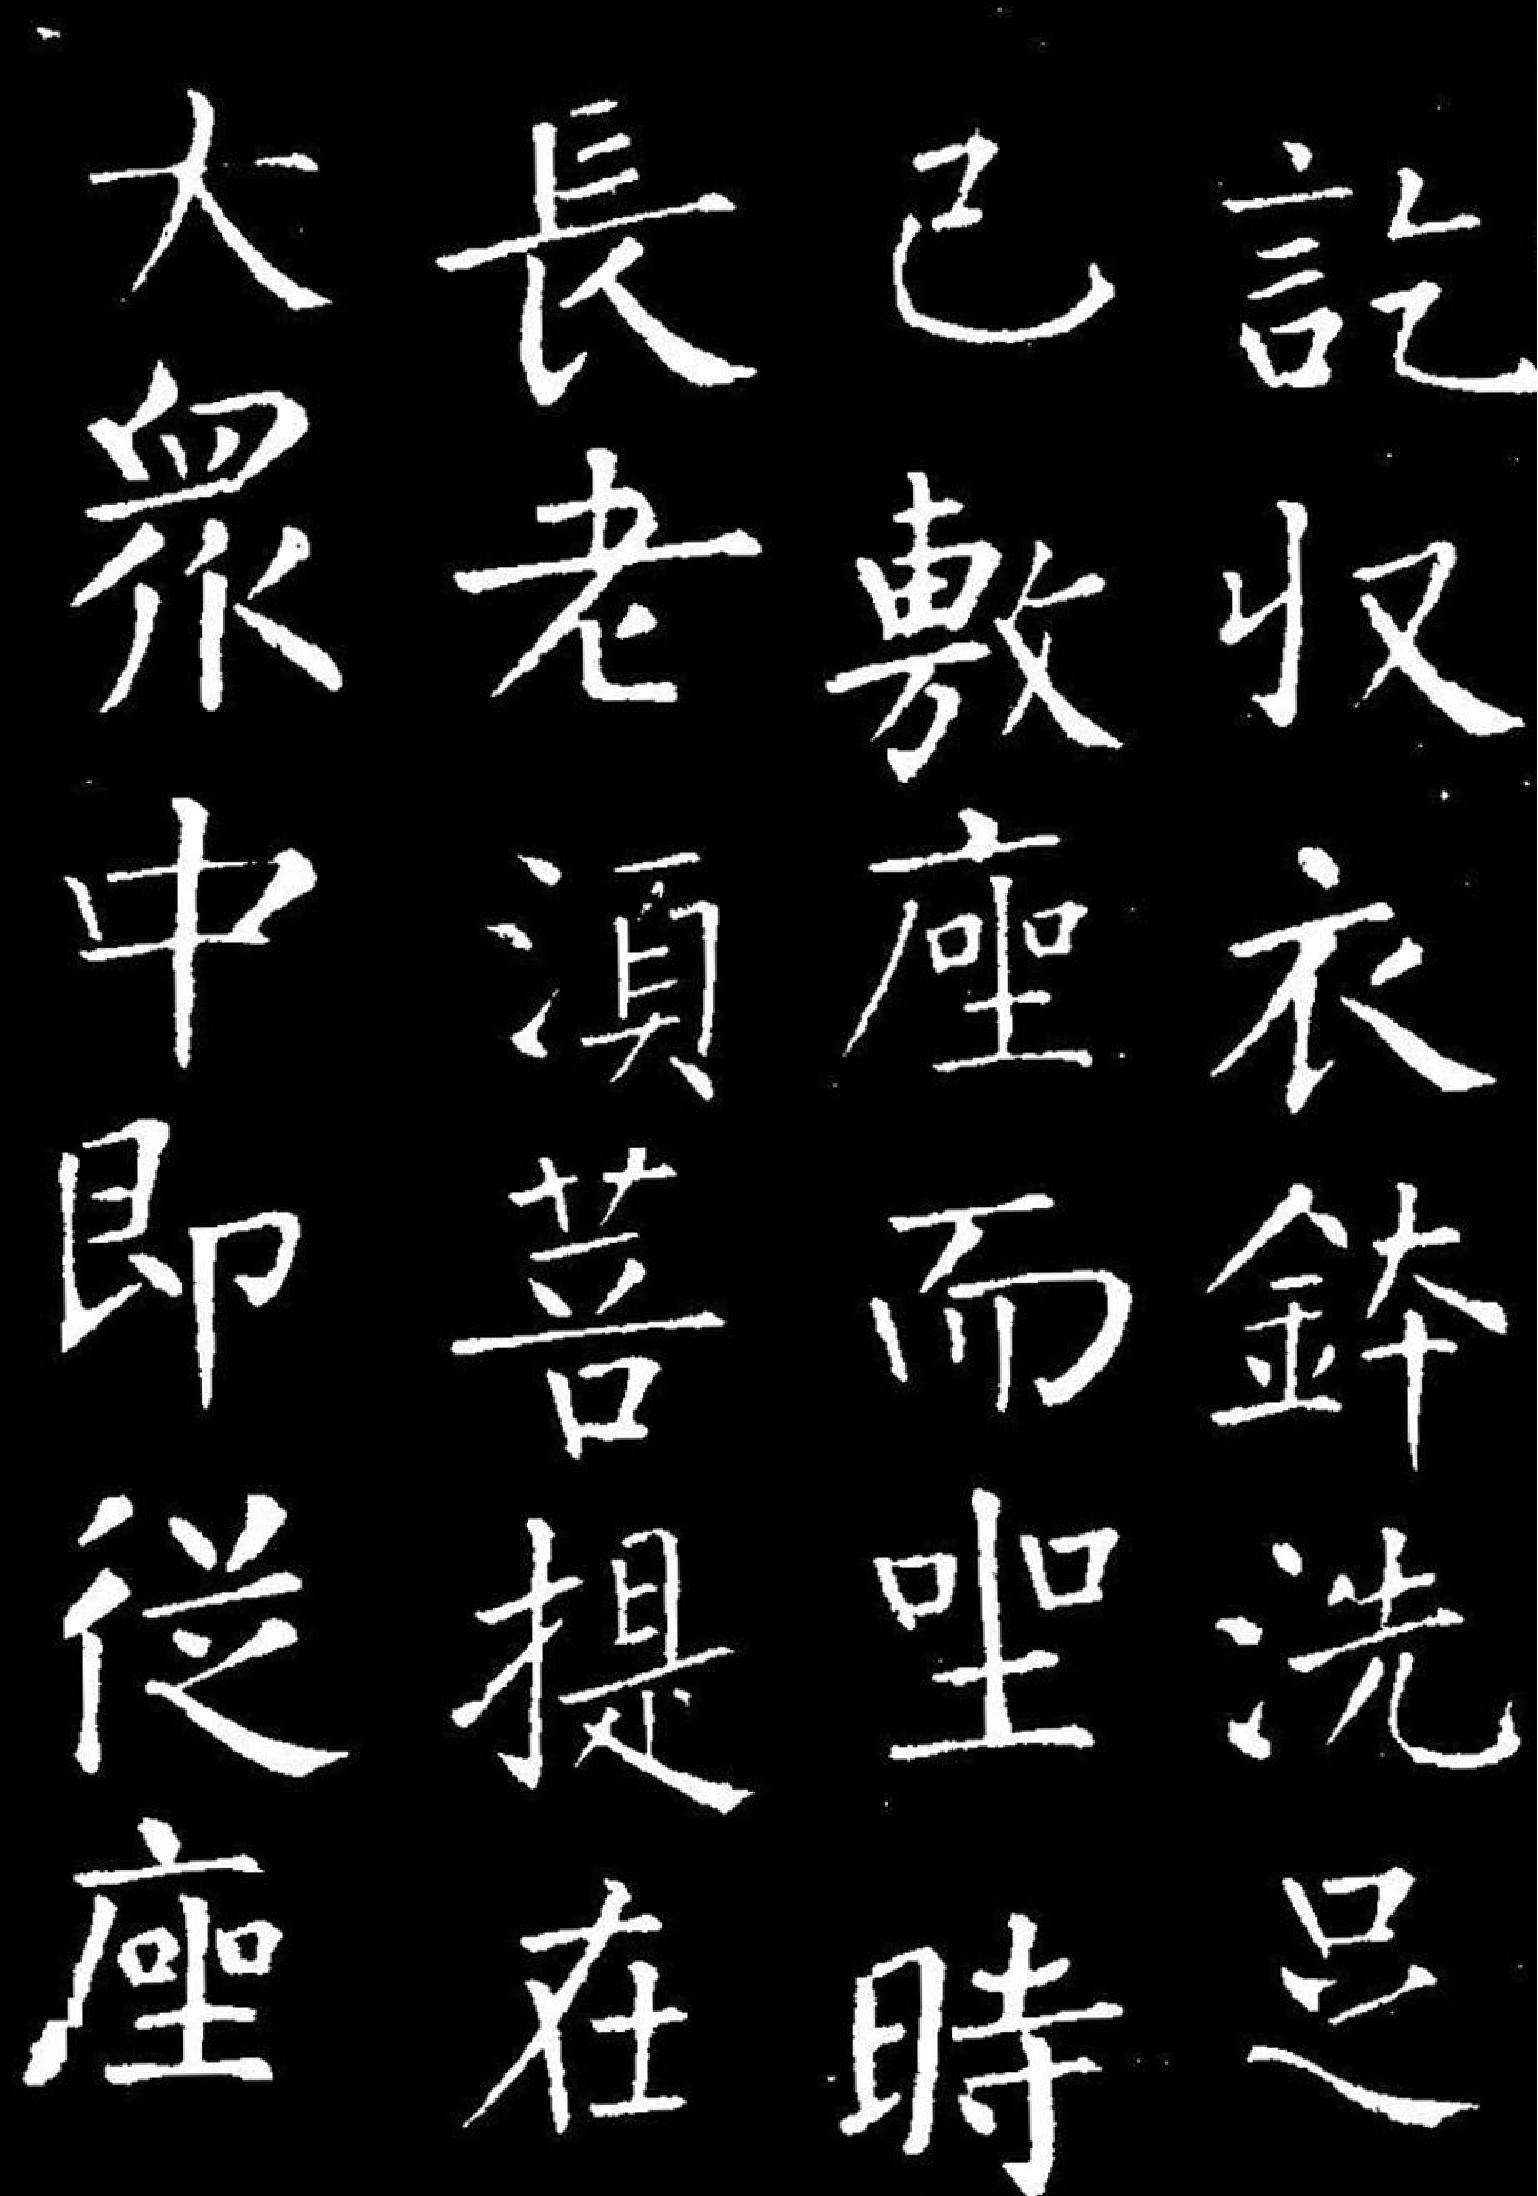 訖収衣鉢洗足
已敷座而坐時
長老須菩提在
大眾中即從座